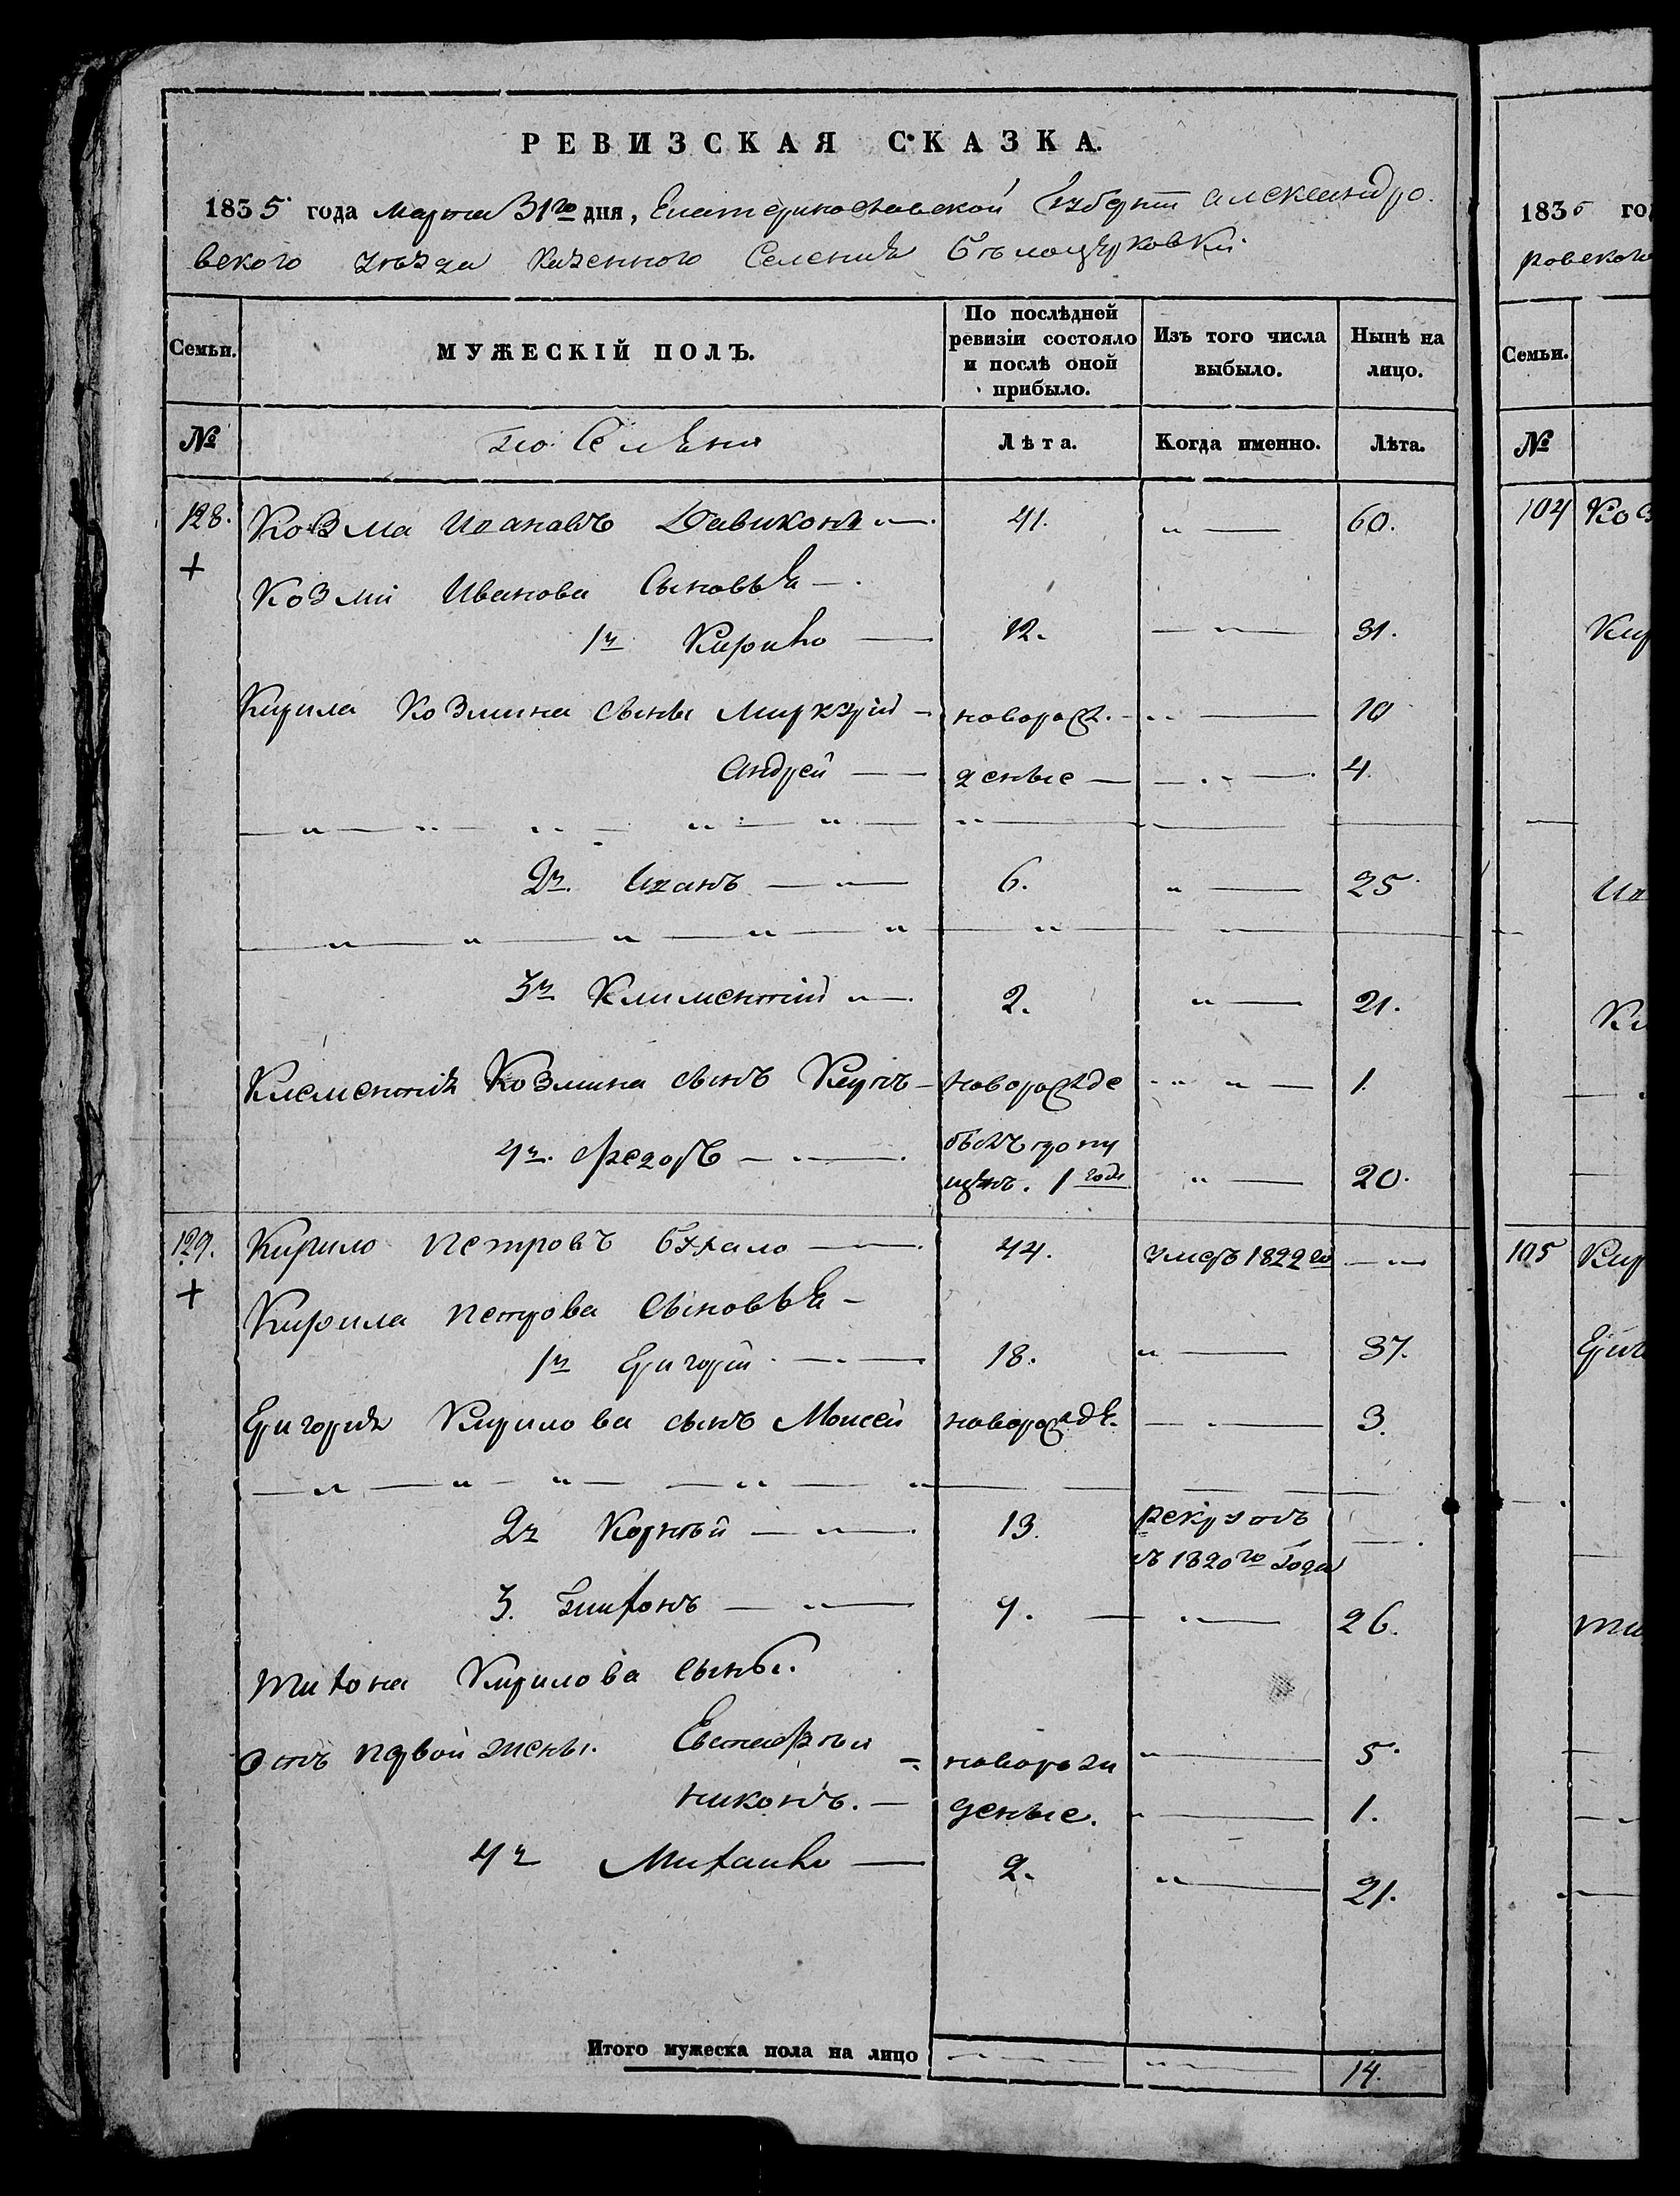 РЕВИЗСКАЯ СКАЗКА.
1835 года марта 31го дня, Екатеринославской Губерніи Александро-
вского уѣзда казенного Селенія Бѣлоцерковки
Семьи. МУЖЕСКІЙ ПОЛЪ. По послѣдней ревизіи состояло и послѣ оной прибыло. Изъ того числа выбыло. Нынѣ на лицо.
№ Лѣта. Когда именно. Лѣта.
128. Козма Ивановъ 41. 60.
Козми Иванова Сыновья
1й Кирило 12. 31.
Кирила Козмина сыны Миркурій новорож- 10
Андрей деные 4.
2й Иванъ 6. 25
3й Климентій 2. 21.
Климентія Козмина сынъ Карпъ новорожде 1.
4й Федоръ былъ пропу
щенъ. 1 года 20.
129. Кирило Петровъ 44. умеръ 1822го
Кирила Петрова Сыновья
1й Григорій 18. 37.
Григорія Кирилова сынъ Моисей новорожде. 3.
2й Корнѣй 13. рекрутъ
съ 1820го Года
3. Тихонъ 7. 26.
Тихона Кирилова сыны.
отъ первой жены. Евстафѣй новорож 5.
Никонъ. деные. 1.
4й Михайло 2. 21.
Итого мужеска пола на лицо 14.
1835 год
ровского
Семьи.
№
104 Коз
Кир
Ив
Кл
105 Кир
Григ
Ти